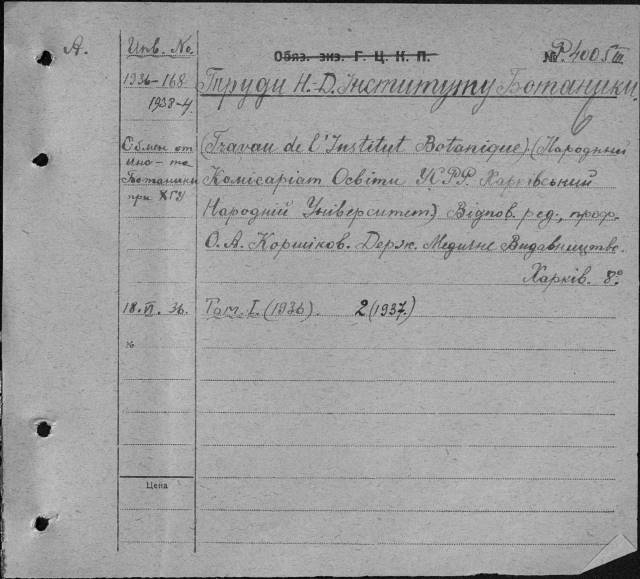 А.
Инв. No
Обяз. экз. Г. Ц. К. П.
№ Р4005 III
1936-168
1938-4
Труди Н.-Д. Інституту Ботаники
Обмен от
ино-та
Ботаники
при ХГУ
(Travau de l'Institut Botanique) (Народний
Комісаріат Освіти УСРР. Харківський
Народній Університет) Відпов. ред., проф.
О. А. Коршіков. Держ. Медичне Видавництво.
Харків. 8°
18. VI. 36.
Том. I. (1936). 2 (1937.)
№
Цена